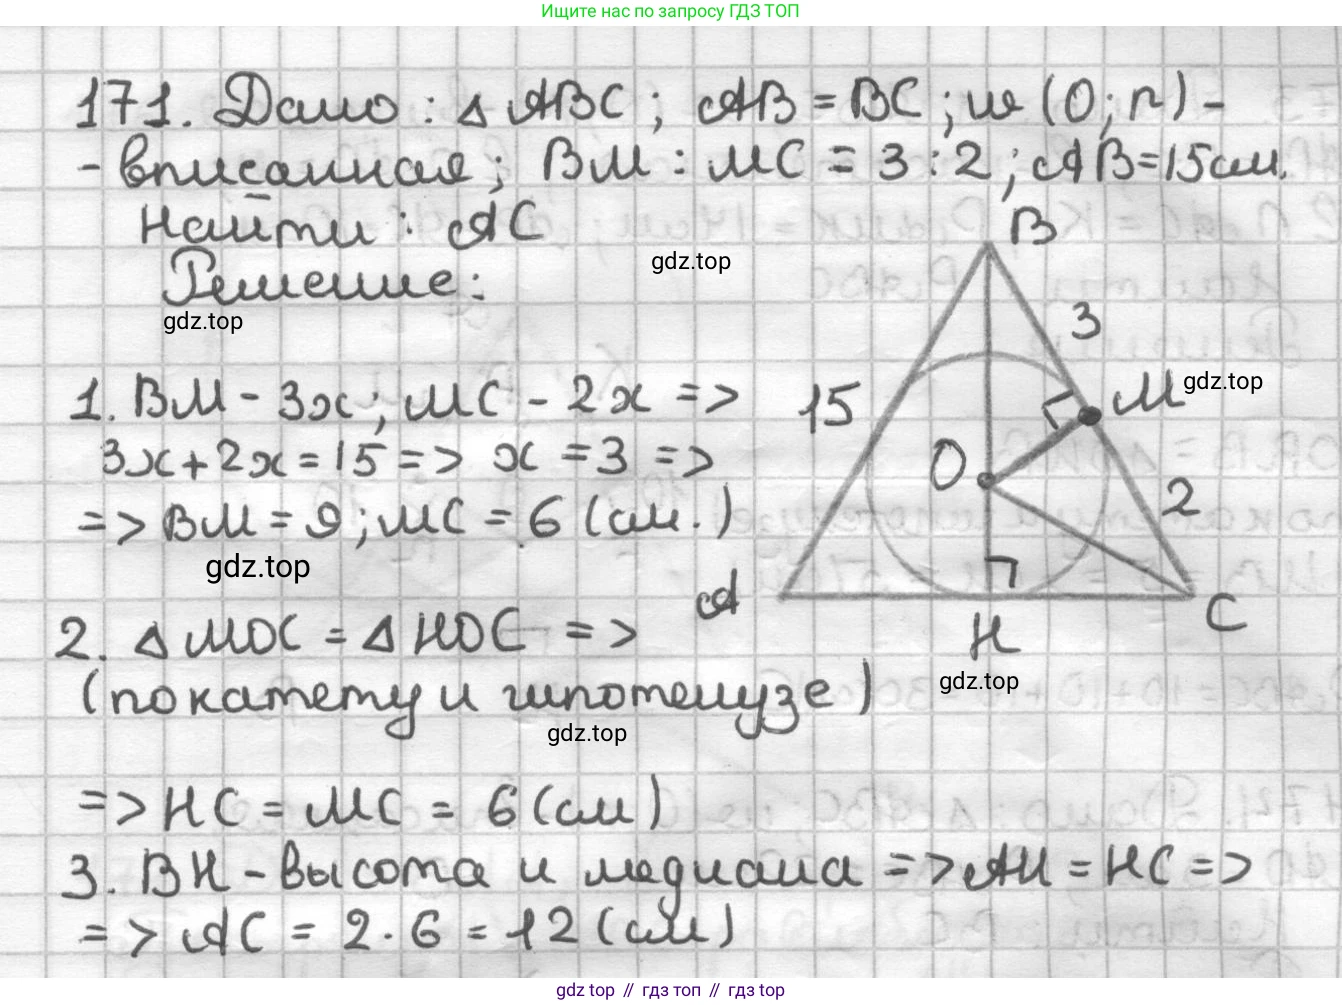 Ищите нас по запросу ГДЗ ТОП
171. Дано: △ ABC; AB = BC; ω (O; r) -
- вписанная; BM : MC = 3 : 2; AB = 15 см.
Найти: AC
Решение:
gdz.top
gdz.top
B
3
M
gdz.top
15
O
2
A
H
C
gdz.top
1. BM - 3x; MC - 2x =>
3x + 2x = 15 => x = 3 =>
=> BM = 9; MC = 6 (см.)
gdz.top
2. △ MOC = △ HOC =>
(по катету и гипотенузе)
gdz.top
=> HC = MC = 6 (см)
3. BH - высота и медиана => AH = HC =>
=> AC = 2 · 6 = 12 (см)
gdz top // гдз топ // gdz top